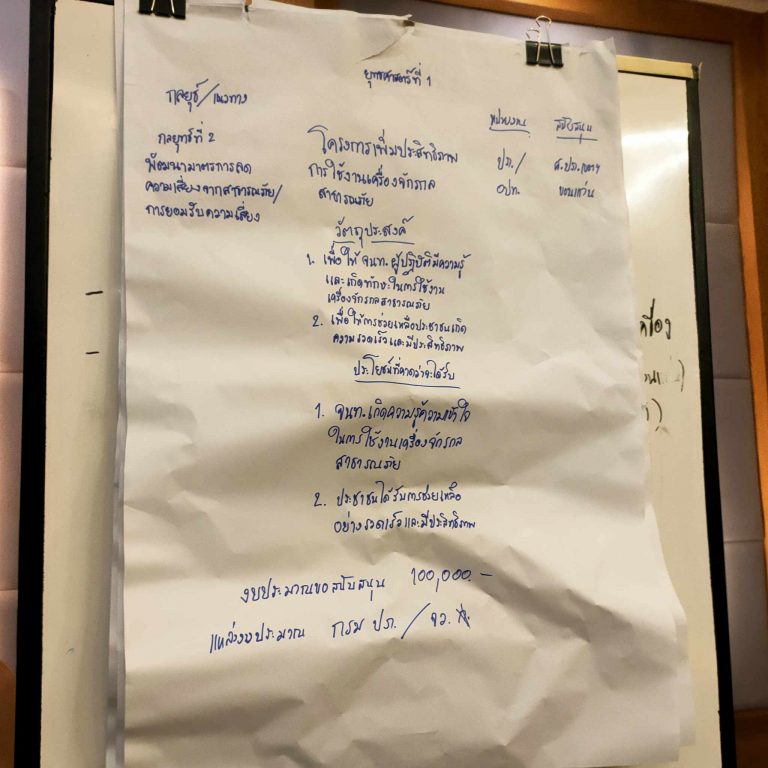 ยุทธศาสตร์ที่ 1
กลยุธ์/แนวทาง
หน่วยงาน สนับสนุน
กลยุทธ์ที่ 2
พัฒนามาตรการลด
ความเสี่ยงจากสาธารณภัย/
การยอมรับความเสี่ยง
โครงการเพิ่มประสิทธิภาพ
การใช้งานเครื่องจักรกล
สาธารณภัย
ปภ./
อปท.
ขอนแก่น
วัตถุประสงค์
1. เพื่อให้ จนท. ผู้ปฏิบัติมีความรู้
และเกิดทักษะในการใช้งาน
เครื่องจักรกลสาธารณภัย
2. เพื่อให้การช่วยเหลือประชาชนเกิด
ความรวดเร็วและมีประสิทธิภาพ
ประโยชน์ที่คาดว่าจะได้รับ
1. จนท. เกิดความรู้ความเข้าใจ
ในการใช้งานเครื่องจักรกล
สาธารณภัย
2. ประชาชนได้รับการช่วยเหลือ
อย่างรวดเร็วและมีประสิทธิภาพ
งบประมาณขอสนับสนุน 100,000.-
แหล่งงบประมาณ กรม ปภ. / จว.